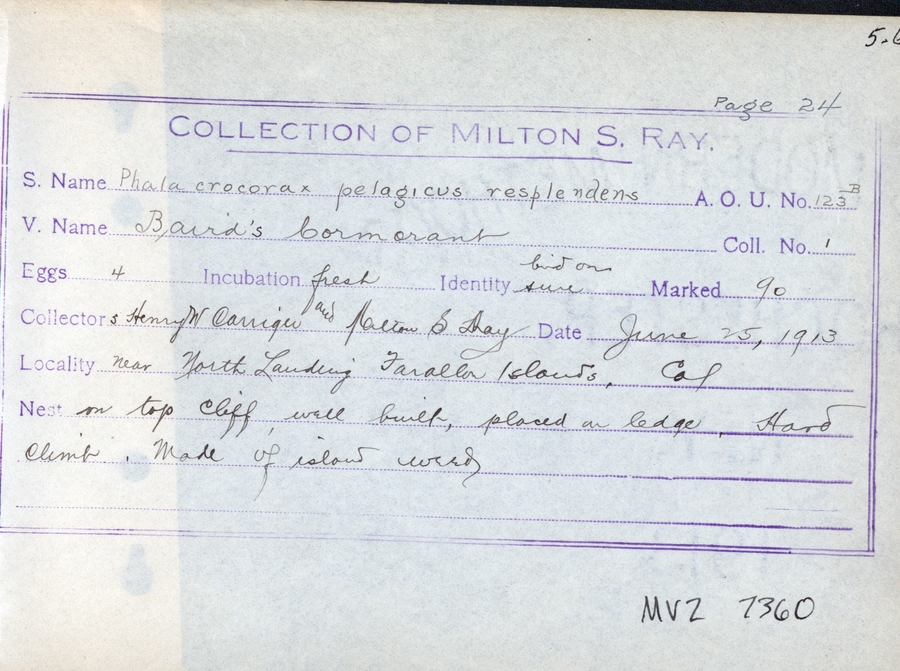 5.6
Page 24
COLLECTION OF MILTON S. RAY.
S. Name Phalacrocorax pelagicus resplendens A. O. U. No. 123 B
V. Name Baird's Cormorant Coll. No. 1
Eggs 4 Incubation fresh Identity bird on sure Marked 90
Collectors Henry W Carriger and Milton S Ray Date June 25, 1913
Locality near North Landing Farallon Islands, Cal
Nest on top cliff, well built, placed on ledge. Hard
climb. Made of island weeds
MVZ 7360